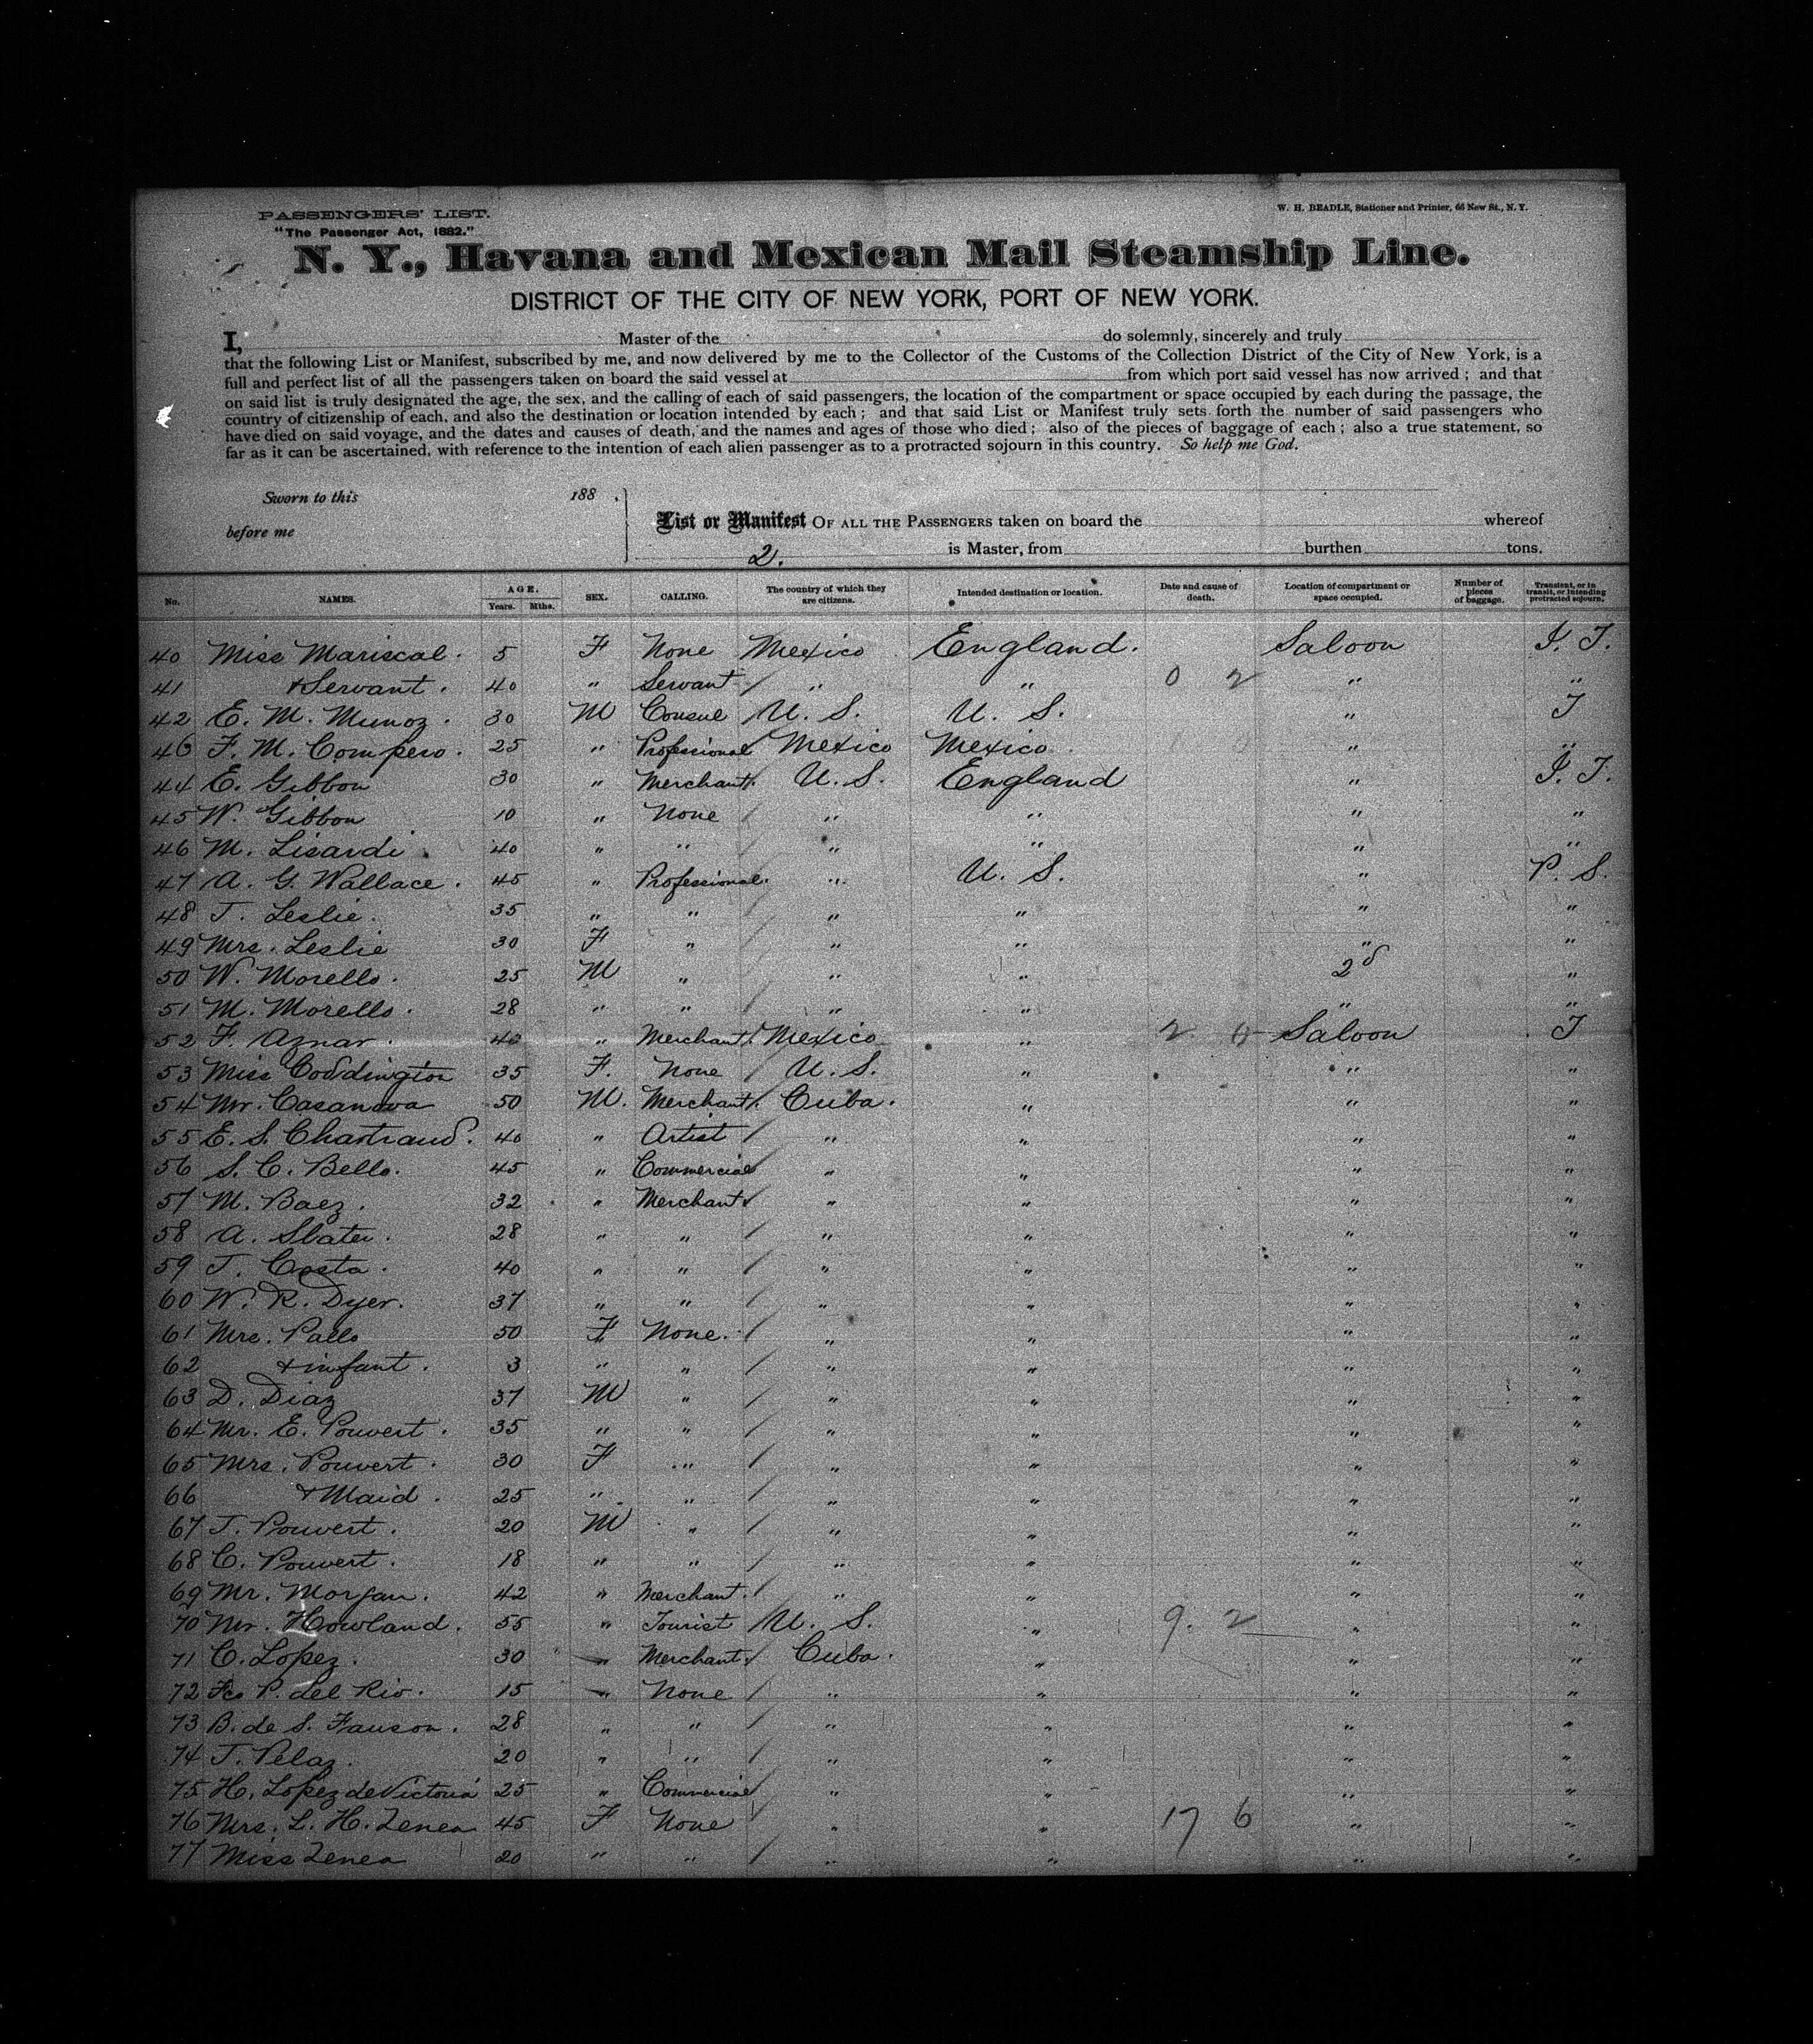 PASSENGERS' LIST.
"The Passenger Act, 1882."
W. H. BEADLE, Stationer and Printer, 66 New St., N. Y.
N. Y., Havana and Mexican Mail Steamship Line.
DISTRICT OF THE CITY OF NEW YORK, PORT OF NEW YORK.
I, Master of the do solemnly, sincerely and truly
that the following List or Manifest, subscribed by me, and now delivered by me to the Collector of the Customs of the Collection District of the City of New York, is a
full and perfect list of all the passengers taken on board the said vessel at from which port said vessel has now arrived ; and that
on said list is truly designated the age, the sex, and the calling of each of said passengers, the location of the compartment or space occupied by each during the passage, the
country of citizenship of each, and also the destination or location intended by each ; and that said List or Manifest truly sets forth the number of said passengers who
have died on said voyage, and the dates and causes of death, and the names and ages of those who died ; also of the pieces of baggage of each ; also a true statement, so
far as it can be ascertained, with reference to the intention of each alien passenger as to a protracted sojourn in this country. So help me God.
Sworn to this 188 .
before me
List or Manifest OF ALL THE PASSENGERS taken on board the whereof
2. is Master, from burthen tons.
No. NAMES. AGE. Years. Mths. SEX. CALLING. The country of which they are citizens. Intended destination or location. Date and cause of death. Location of compartment or space occupied. Number of pieces of baggage. Transient, or in transit, or intending protracted sojourn.
40 Miss Mariscal. 5 F None Mexico England. Saloon I. T.
41 + Servant. 40 " Servant / " " 0 2 " "
42 E. M. Munoz. 30 M Consul / U. S. U. S. " T
43 F. M. Compero. 25 " Professional / Mexico Mexico " "
44 E. Gibbon 30 " Merchant / U. S. England " I. T.
45 W. Gibbon 10 " None / " " " "
46 M. Lisardi. 40 " " / " " " "
47 A. G. Wallace. 45 " Professional. " U. S. " P. S.
48 T. Leslie. 35 " " / " " " "
49 Mrs. Leslie 30 F " / " " " "
50 W. Morello. 25 M " / " " 2d "
51 M. Morello. 28 " " / " " " "
52 F. Aznar. 40 " Merchant / Mexico " 2 6 Saloon T
53 Miss Coddington 35 F. None / U. S. " " "
54 Mr. Casanova 50 M. Merchant / Cuba. " " "
55 E. S. Chartrand. 40 " Artist / " " " "
56 S. C. Bello. 45 " Commercial / " " " "
57 M. Baez. 32 " Merchant / " " " "
58 A. Slater. 28 " " / " " " "
59 T. Costa. 40 " " / " " " "
60 W. R. Dyer. 37 " " / " " " "
61 Mrs. Pallo 50 F None. " " " "
62 + infant. 3 " " / " " " "
63 D. Diaz 37 M " / " " " "
64 Mr. E. Pouvert. 35 " " / " " " "
65 Mrs. Pouvert. 30 F " / " " " "
66 + Maid. 25 " " / " " " "
67 T. Pouvert. 20 M " / " " " "
68 C. Pouvert. 18 " " / " " " "
69 Mr. Morgan. 42 " Merchant. / " " " "
70 Mr. Howland. 55 " Tourist / U. S. " 9. 2 " "
71 C. Lopez. 30 " Merchant / Cuba. " " "
72 Fco P. del Rio. 15 " None / " " " "
73 B. de S. Fauson. 28 " " / " " " "
74 T. Pelaz. 20 " " / " " " "
75 H. Lopez de Victoria 25 " Commercial / " " " "
76 Mrs. L. H. Zenea 45 F None / " " 17 6 " "
77 Miss Zenea 20 " " / " " " "